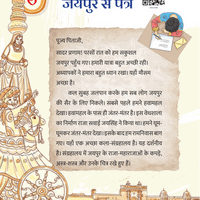 जयपुर से पत्र
पूज्य पिताजी,
सादर प्रणाम! परसों रात को हम सकुशल
जयपुर पहुँच गए। हमारी यात्रा बहुत अच्छी रही।
अध्यापकों ने हमारा बहुत ध्यान रखा। यहाँ मौसम
अच्छा है।
कल सुबह जलपान करके हम सब लोग जयपुर
की सैर के लिए निकले। सबसे पहले हमने हवामहल
देखा। हवामहल के पास ही जंतर-मंतर है। इस वेधशाला
का निर्माण राजा सवाई जयसिंह ने किया था। हमने घूम-
घूमकर जंतर-मंतर देखा। इसके बाद हम रामनिवास बाग
गए। वहाँ एक अच्छा कला-संग्रहालय है। यह दर्शनीय
है। संग्रहालय में जयपुर के राजा-महाराजाओं के कपड़े,
अस्त्र-शस्त्र और उनके चित्र रखे हुए हैं।